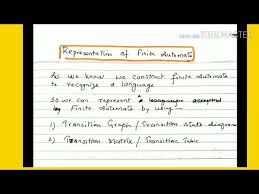 Representation of Finite Automata
As we know we construct finite automata
to recognize a language
So we can represent a language accepted
by Finite automata by using
1) Transition Graph / Transition state diagram
2) Transition Matrix / Transition Table